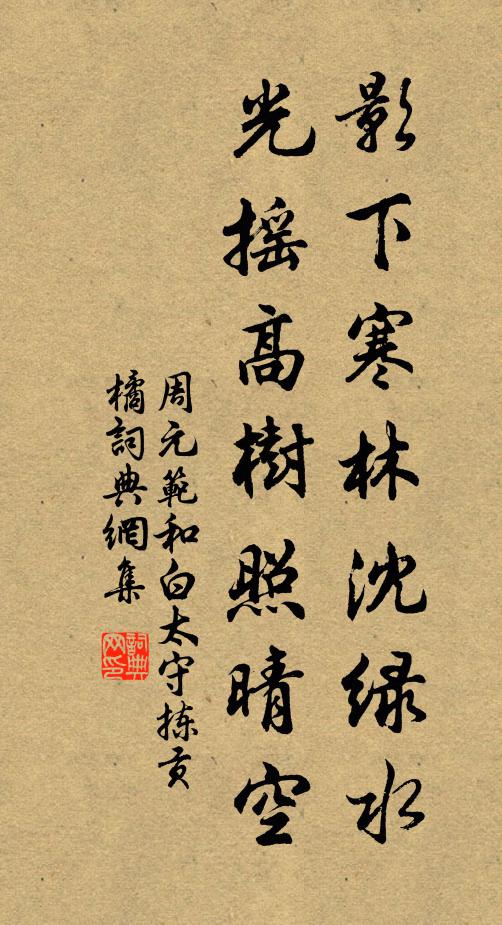 影下寒林沈绿水
光摇高樹照晴空
周元範和白太守拣贡
橘詞典網集
詞典
网印